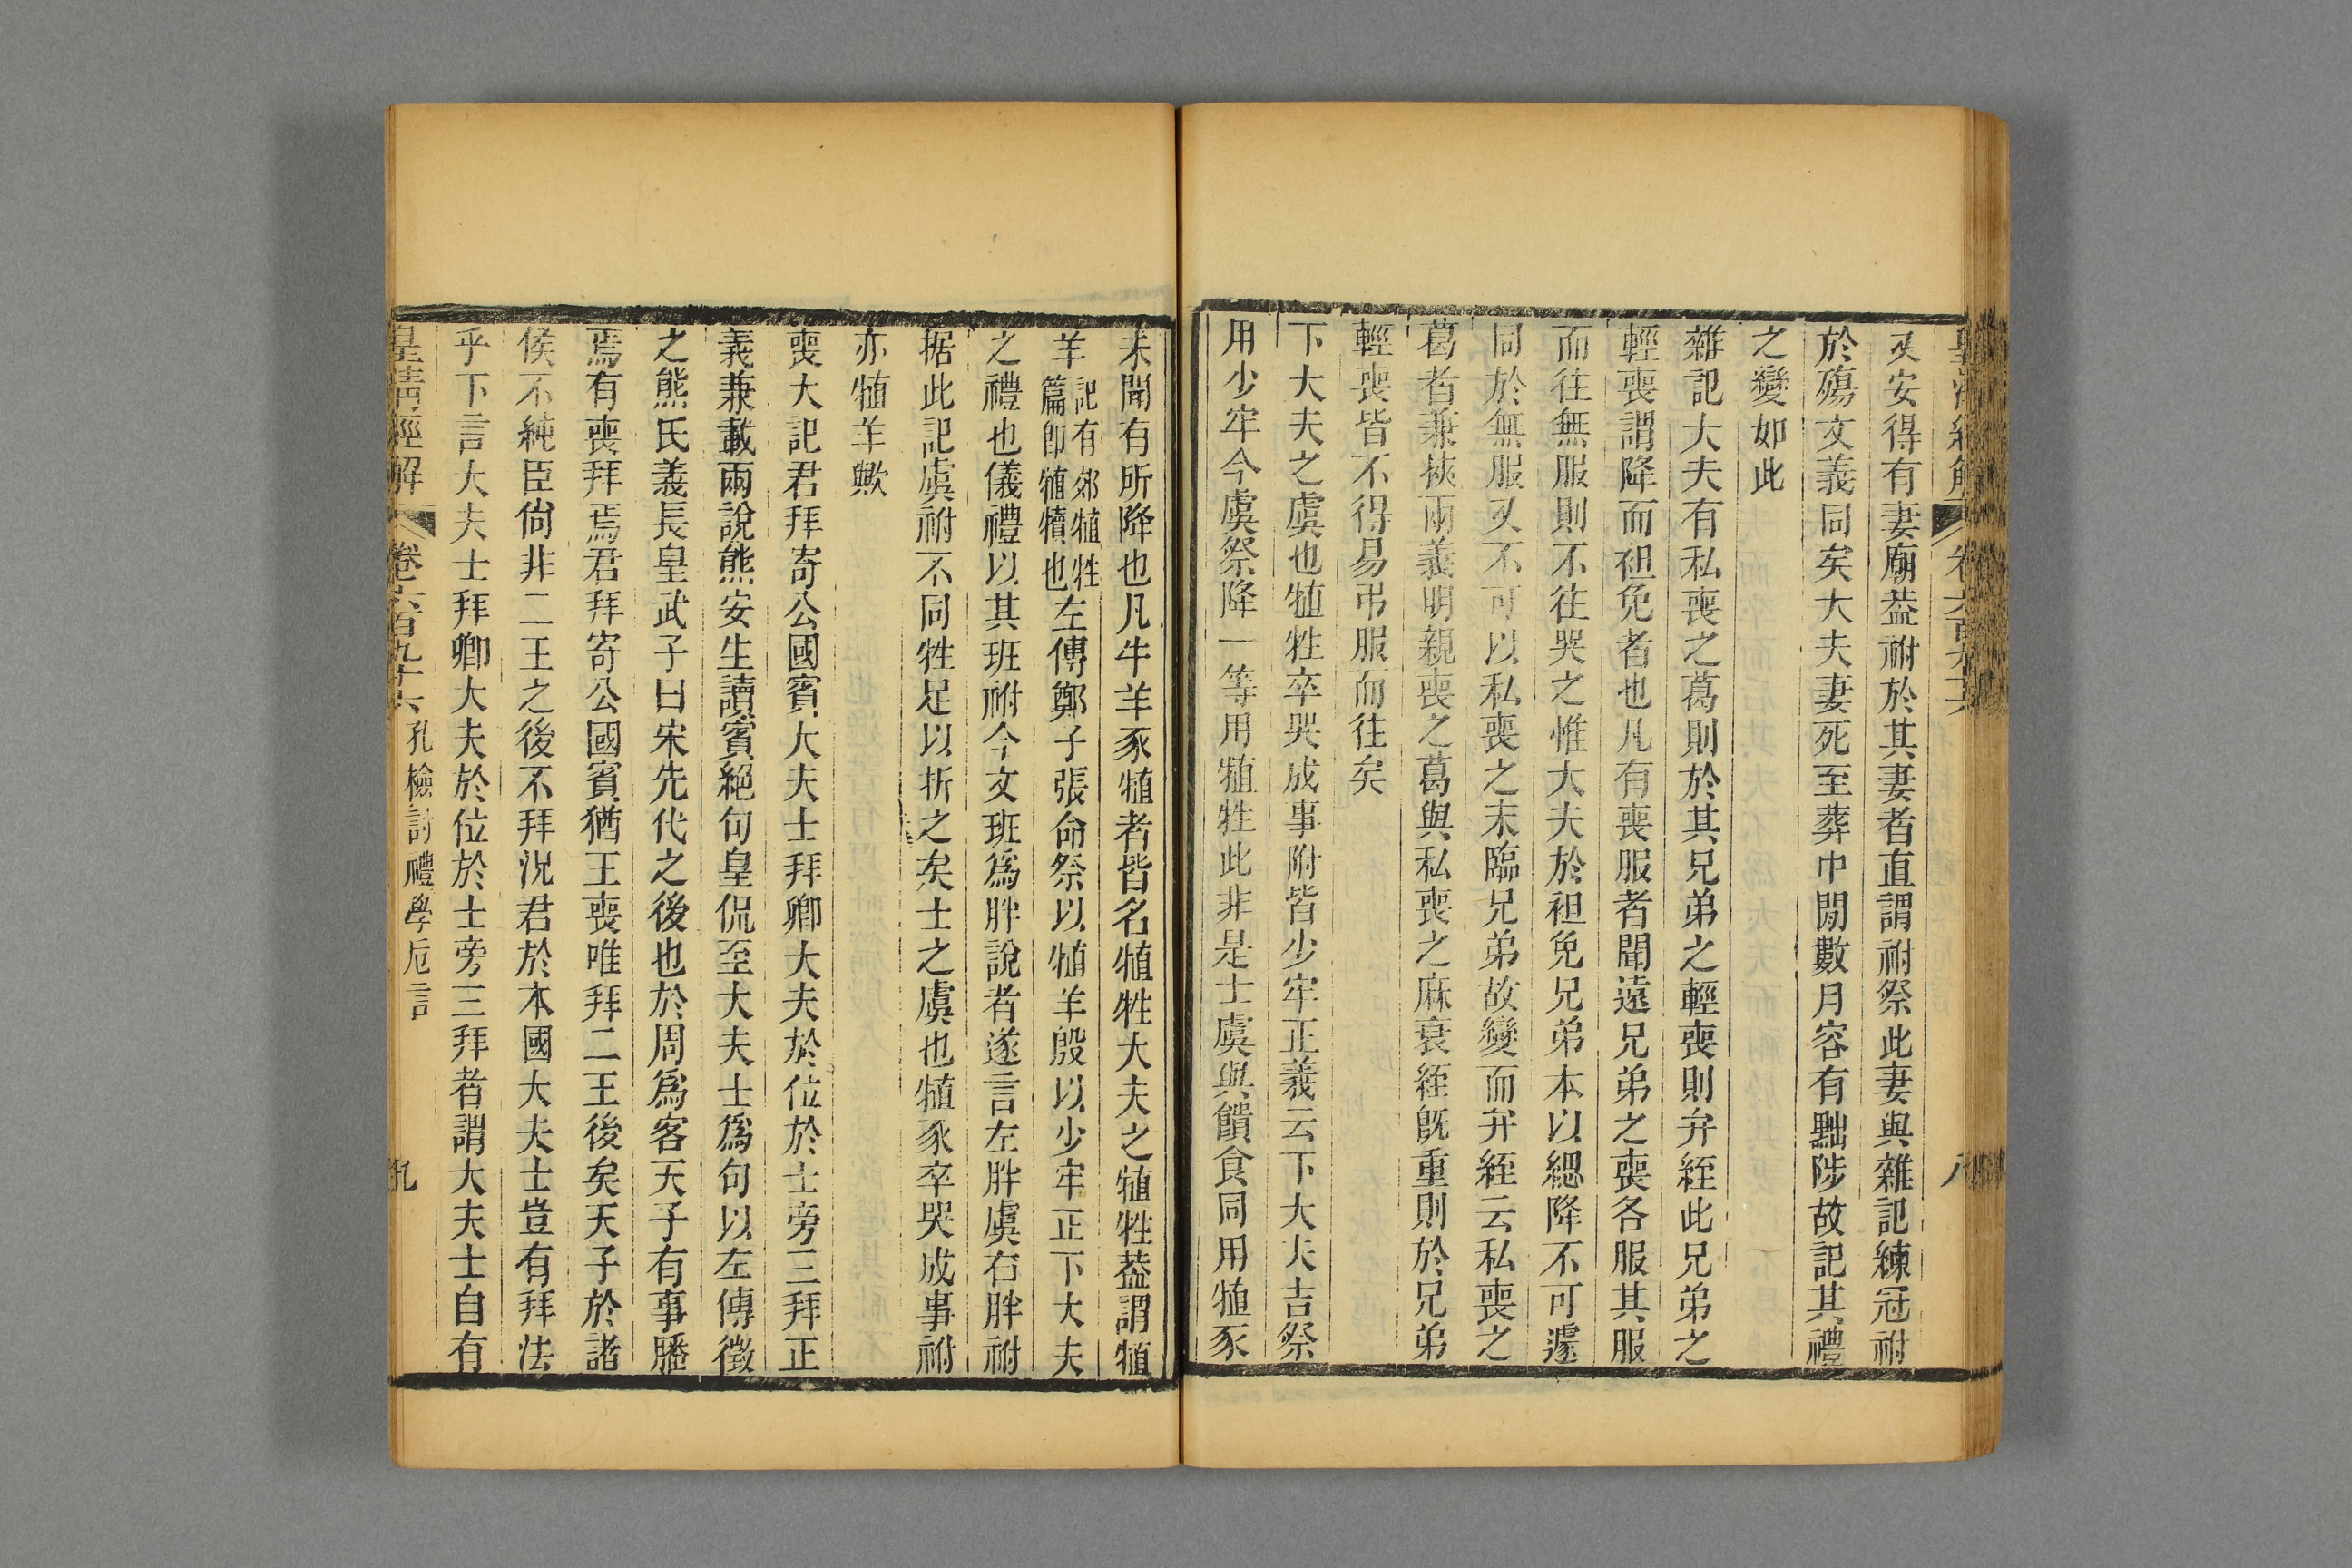 皇清經解 卷六百九十六 八
又安得有妻廟葢祔於其妻者直謂祔祭此妻與雜記練冠祔
於殤文義同矣大夫妻死至葬中閒數月容有黜陟故記其禮
之變如此
雜記大夫有私喪之葛則於其兄弟之輕喪則弁絰此兄弟之
輕喪謂降而袒免者也凡有喪服者聞遠兄弟之喪各服其服
而往無服則不往哭之惟大夫於袒免兄弟本以緦降不可遽
同於無服又不可以私喪之末臨兄弟故變而弁絰云私喪之
葛者兼挾兩義明親喪之葛與私喪之麻衰絰旣重則於兄弟
輕喪皆不得易弔服而往矣
下大夫之虞也犆牲卒哭成事附皆少牢正義云下大夫吉祭
用少牢今虞祭降一等用犆牲此非是士虞與饋食同用犆豕
未聞有所降也凡牛羊豕犆者皆名犆牲大夫之犆牲葢謂犆
羊記有郊犆牲篇卽犆犢也左傳鄭子張命祭以犆羊殷以少牢正下大夫
之禮也儀禮以其班祔今文班爲胖說者遂言左胖虞右胖祔
据此記虞祔不同牲足以折之矣士之虞也犆豕卒哭成事祔
亦犆羊歟
喪大記君拜寄公國賓大夫士拜卿大夫於位於士旁三拜正
義兼載兩說熊安生讀賓絕句皇侃至大夫士爲句以左傳徵
之熊氏義長皇武子曰宋先代之後也於周爲客天子有事膰
焉有喪拜焉君拜寄公國賓猶王喪唯拜二王後矣天子於諸
侯不純臣尙非二王之後不拜況君於本國大夫士豈有拜法
乎下言大夫士拜卿大夫於位於士旁三拜者謂大夫士自有
皇清經解 卷六百九十六 孔檢討禮學卮言 孔